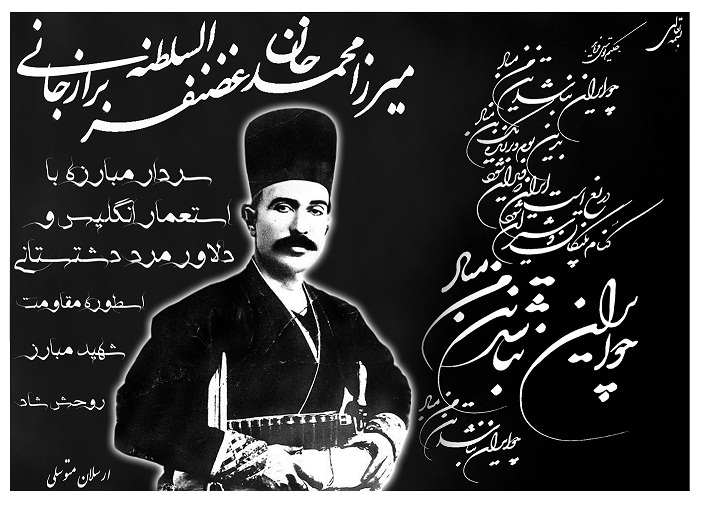 بسمه تعالی
حکیم فردوسی
چو ایران نباشد تن من مباد
بدین بوم و بر زنده یک تن مباد
دریغ است ایران که ویران شود
کنام پلنگان و شیران شود
چو ایران نباشد تن من مباد
چو ایران نباشد تن من مباد
میرزا محمد خان غضنفر السلطنه برازجانی
سردار مبارزه با
استعمار انگلیس و
دلاور مرد دشتستانی
اسطوره مقاومت
شهید مبارز
روحش شاد
ارسلان متوسلی